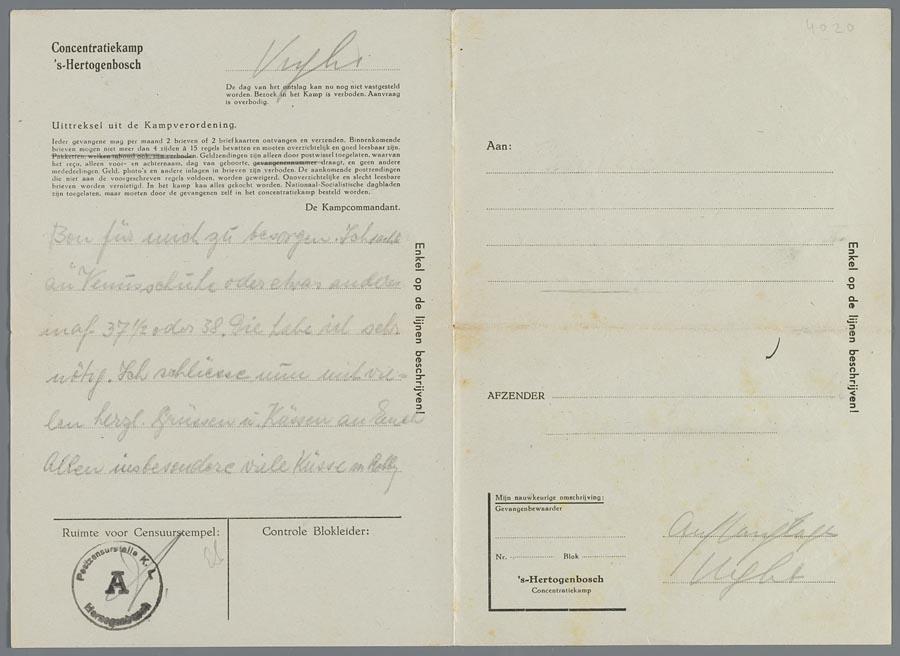 Concentratiekamp
's-Hertogenbosch
Vught
De dag van het ontslag kan nu nog niet vastgesteld
worden. Bezoek in het Kamp is verboden. Aanvraag
is overbodig.
Uittreksel uit de Kampverordening.
Ieder gevangene mag per maand 2 brieven of 2 briefkaarten ontvangen en verzenden. Binnenkomende
brieven mogen niet meer dan 4 zijden à 15 regels bevatten en moeten overzichtelijk en goed leesbaar zijn.
Pakketten, welken inhoud ook, zijn verboden. Geldzendingen zijn alleen door postwissel toegelaten, waarvan
het reçu, alleen voor- en achternaam, dag van geboorte, gevangenennummer draagt, en geen andere
mededeelingen. Geld, photo's en andere inlagen in brieven zijn verboden. De aankomende postzendingen
die niet aan de voorgeschreven regels voldoen, worden geweigerd. Onoverzichtelijke en slecht leesbare
brieven worden vernietigd. In het kamp kan alles gekocht worden. Nationaal-Socialistische dagbladen
zijn toegelaten, maar moeten door de gevangenen zelf in het concentratiekamp besteld worden.
De Kampcommandant.
Bon für mich zu besorgen. Ich
an schuhe oder etwas anderes
maß 37 1/2 oder 38. Die habe ich sehr
nötig. Ich schliesse nun mit vie-
len herzl. Grüssen u. Küssen an Euch
Allen insbesondere viele Küsse
Enkel op de lijnen beschrijven!
Ruimte voor Censuurstempel:
Controle Blokleider:
Postzensurstelle K. L.
A
Herzogenbusch
4020
Aan:
Enkel op de lijnen beschrijven!
AFZENDER
Mijn nauwkeurige omschrijving:
Gevangenbewaarder
Nr. Blok
's-Hertogenbosch
Concentratiekamp
Vught